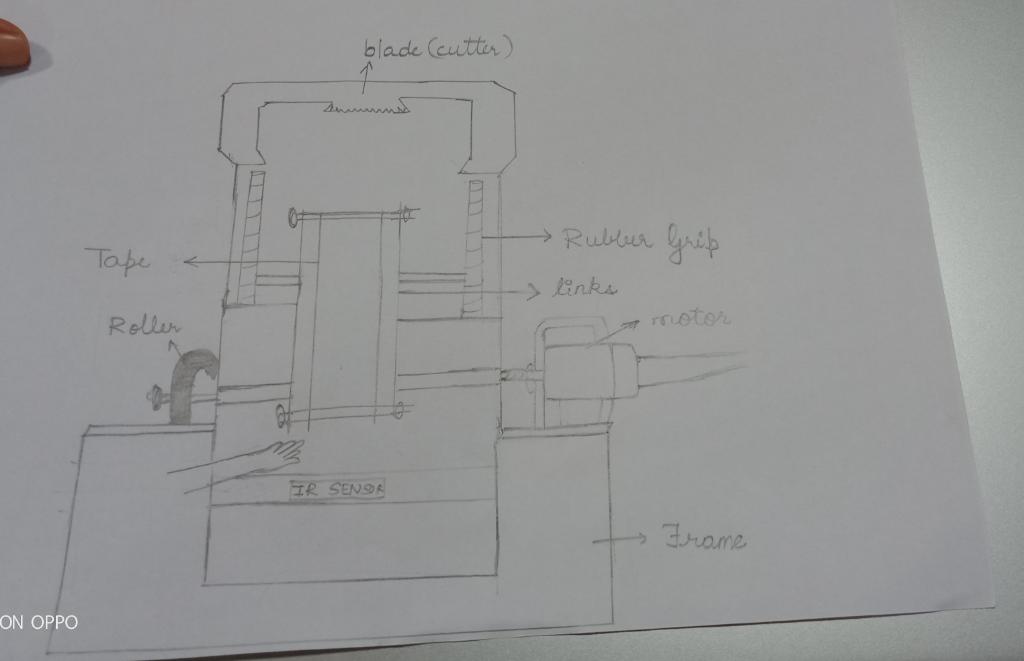 blade (cutter)
Tape
Rubbur Grip
links
Roller
motor
IR SENSOR
Frame
ON OPPO